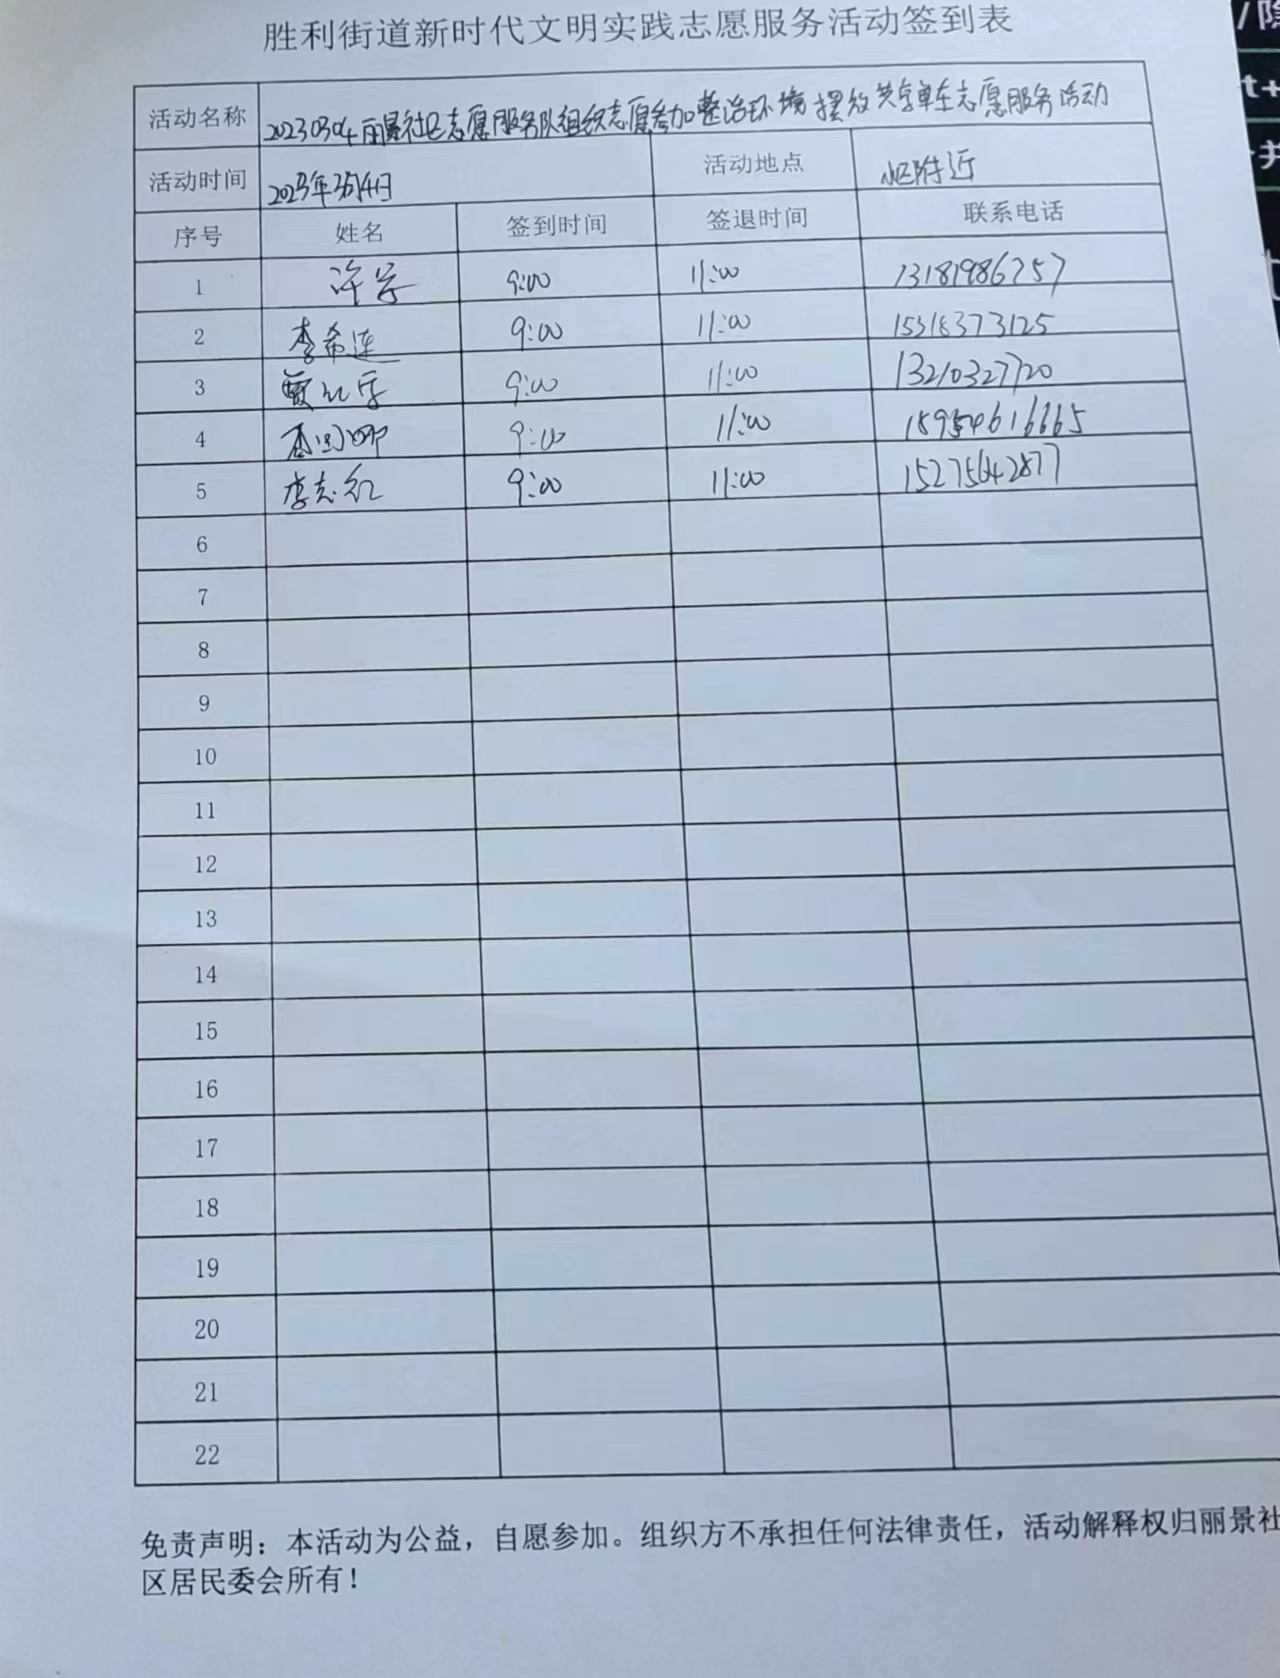 胜利街道新时代文明实践志愿服务活动签到表
活动名称 20230304丽景社区志愿服务队组织志愿参加整治环境摆放共享单车志愿服务活动
活动时间 2023年3月4日 活动地点 小区附近
序号 姓名 签到时间 签退时间 联系电话
1 9:00 11:00 13181986757
2 李希连 9:00 11:00 15318373125
3 9:00 11:00 13210327720
4 9:00 11:00
5 李志红 9:00 11:00 15275642877
6
7
8
9
10
11
12
13
14
15
16
17
18
19
20
21
22
免责声明：本活动为公益，自愿参加。组织方不承担任何法律责任，活动解释权归丽景社
区居民委会所有！